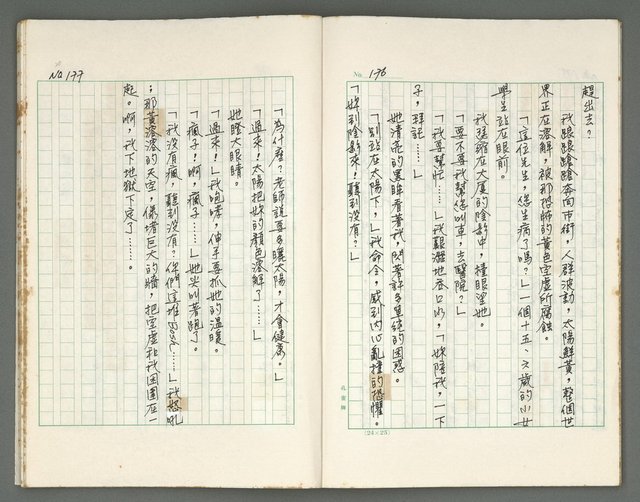 No. 176
趕出去？
我踉踉蹌蹌奔向市街，人群波動，太陽鮮黃，整個世
界正在溶解，被那恐怖的黃色空虛所腐蝕。
「這位先生，您生病了嗎？」一個十五、六歲的小女
學生站在眼前。
我瑟縮在大厦的陰影中，撞眼望她。
「要不要我幫您叫車，去醫院？」
「我要幫忙……」我艱澀地吞口水，「妳陪我，一下
子，拜託……」
她清亮的黑眸看著我，閃著許多單純的困惑。
「別站在太陽下，」我命令，感到內心亂撞的恐懼。
「妳到陰影來！聽到沒有？」
孔雀牌
(24×25)
No 177
「為什麼？老師說要多曬太陽，才會健康。」
「過來！太陽把妳的顏色溶解了……」
她瞪大眼睛。
「過來！」我咆哮，伸手要抓她的溫暖。
「瘋子！啊，瘋子……」她尖叫著跑了。
「我沒有瘋，聽到沒有？你們這堆……」我怒吼
；那黃澄澄的天空，像堵巨大的牆，把空虛和我囚圍在一
起。啊，我下地獄下定了……。